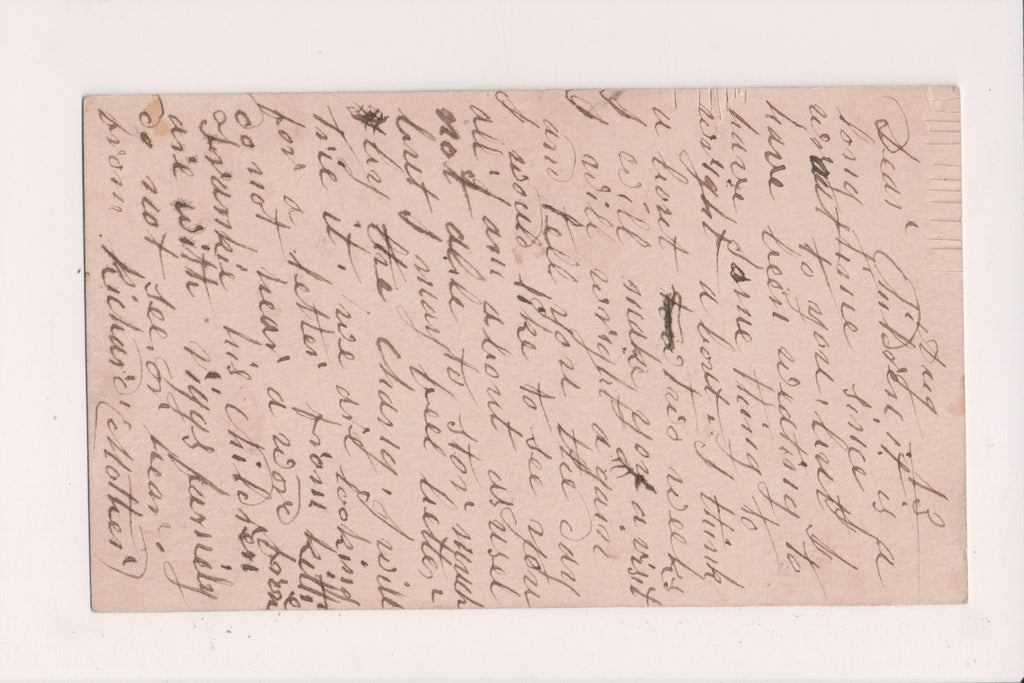 Aug
Dear Children it is a
long time since I
wrat to you but I
have been weating to
have some thing to
wright about I think
a bout two weeks
I will make you a visit
I will wright again
and tell you the day
I would like to see you
all I am about as usel
not able to stor much
but I may feel better
by the chang I will
trie it we are looking
for a letter from kitty
do not hear a word from
Frankie his children
are with riggs furmily
do not see or hear
from Richard Mother